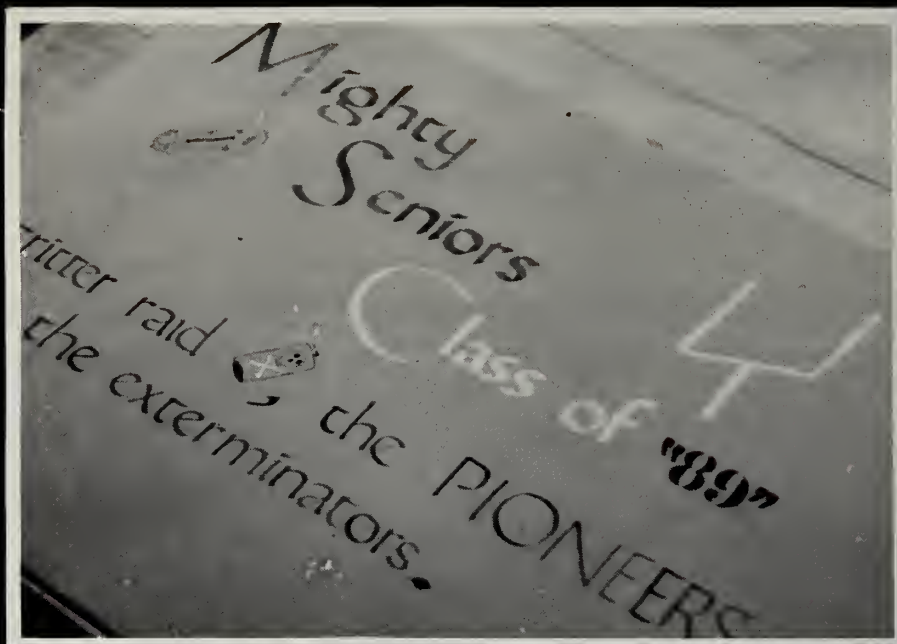 Mighty
Seniors
Class of "89"
critter raid, the PIONEERS
the exterminators.